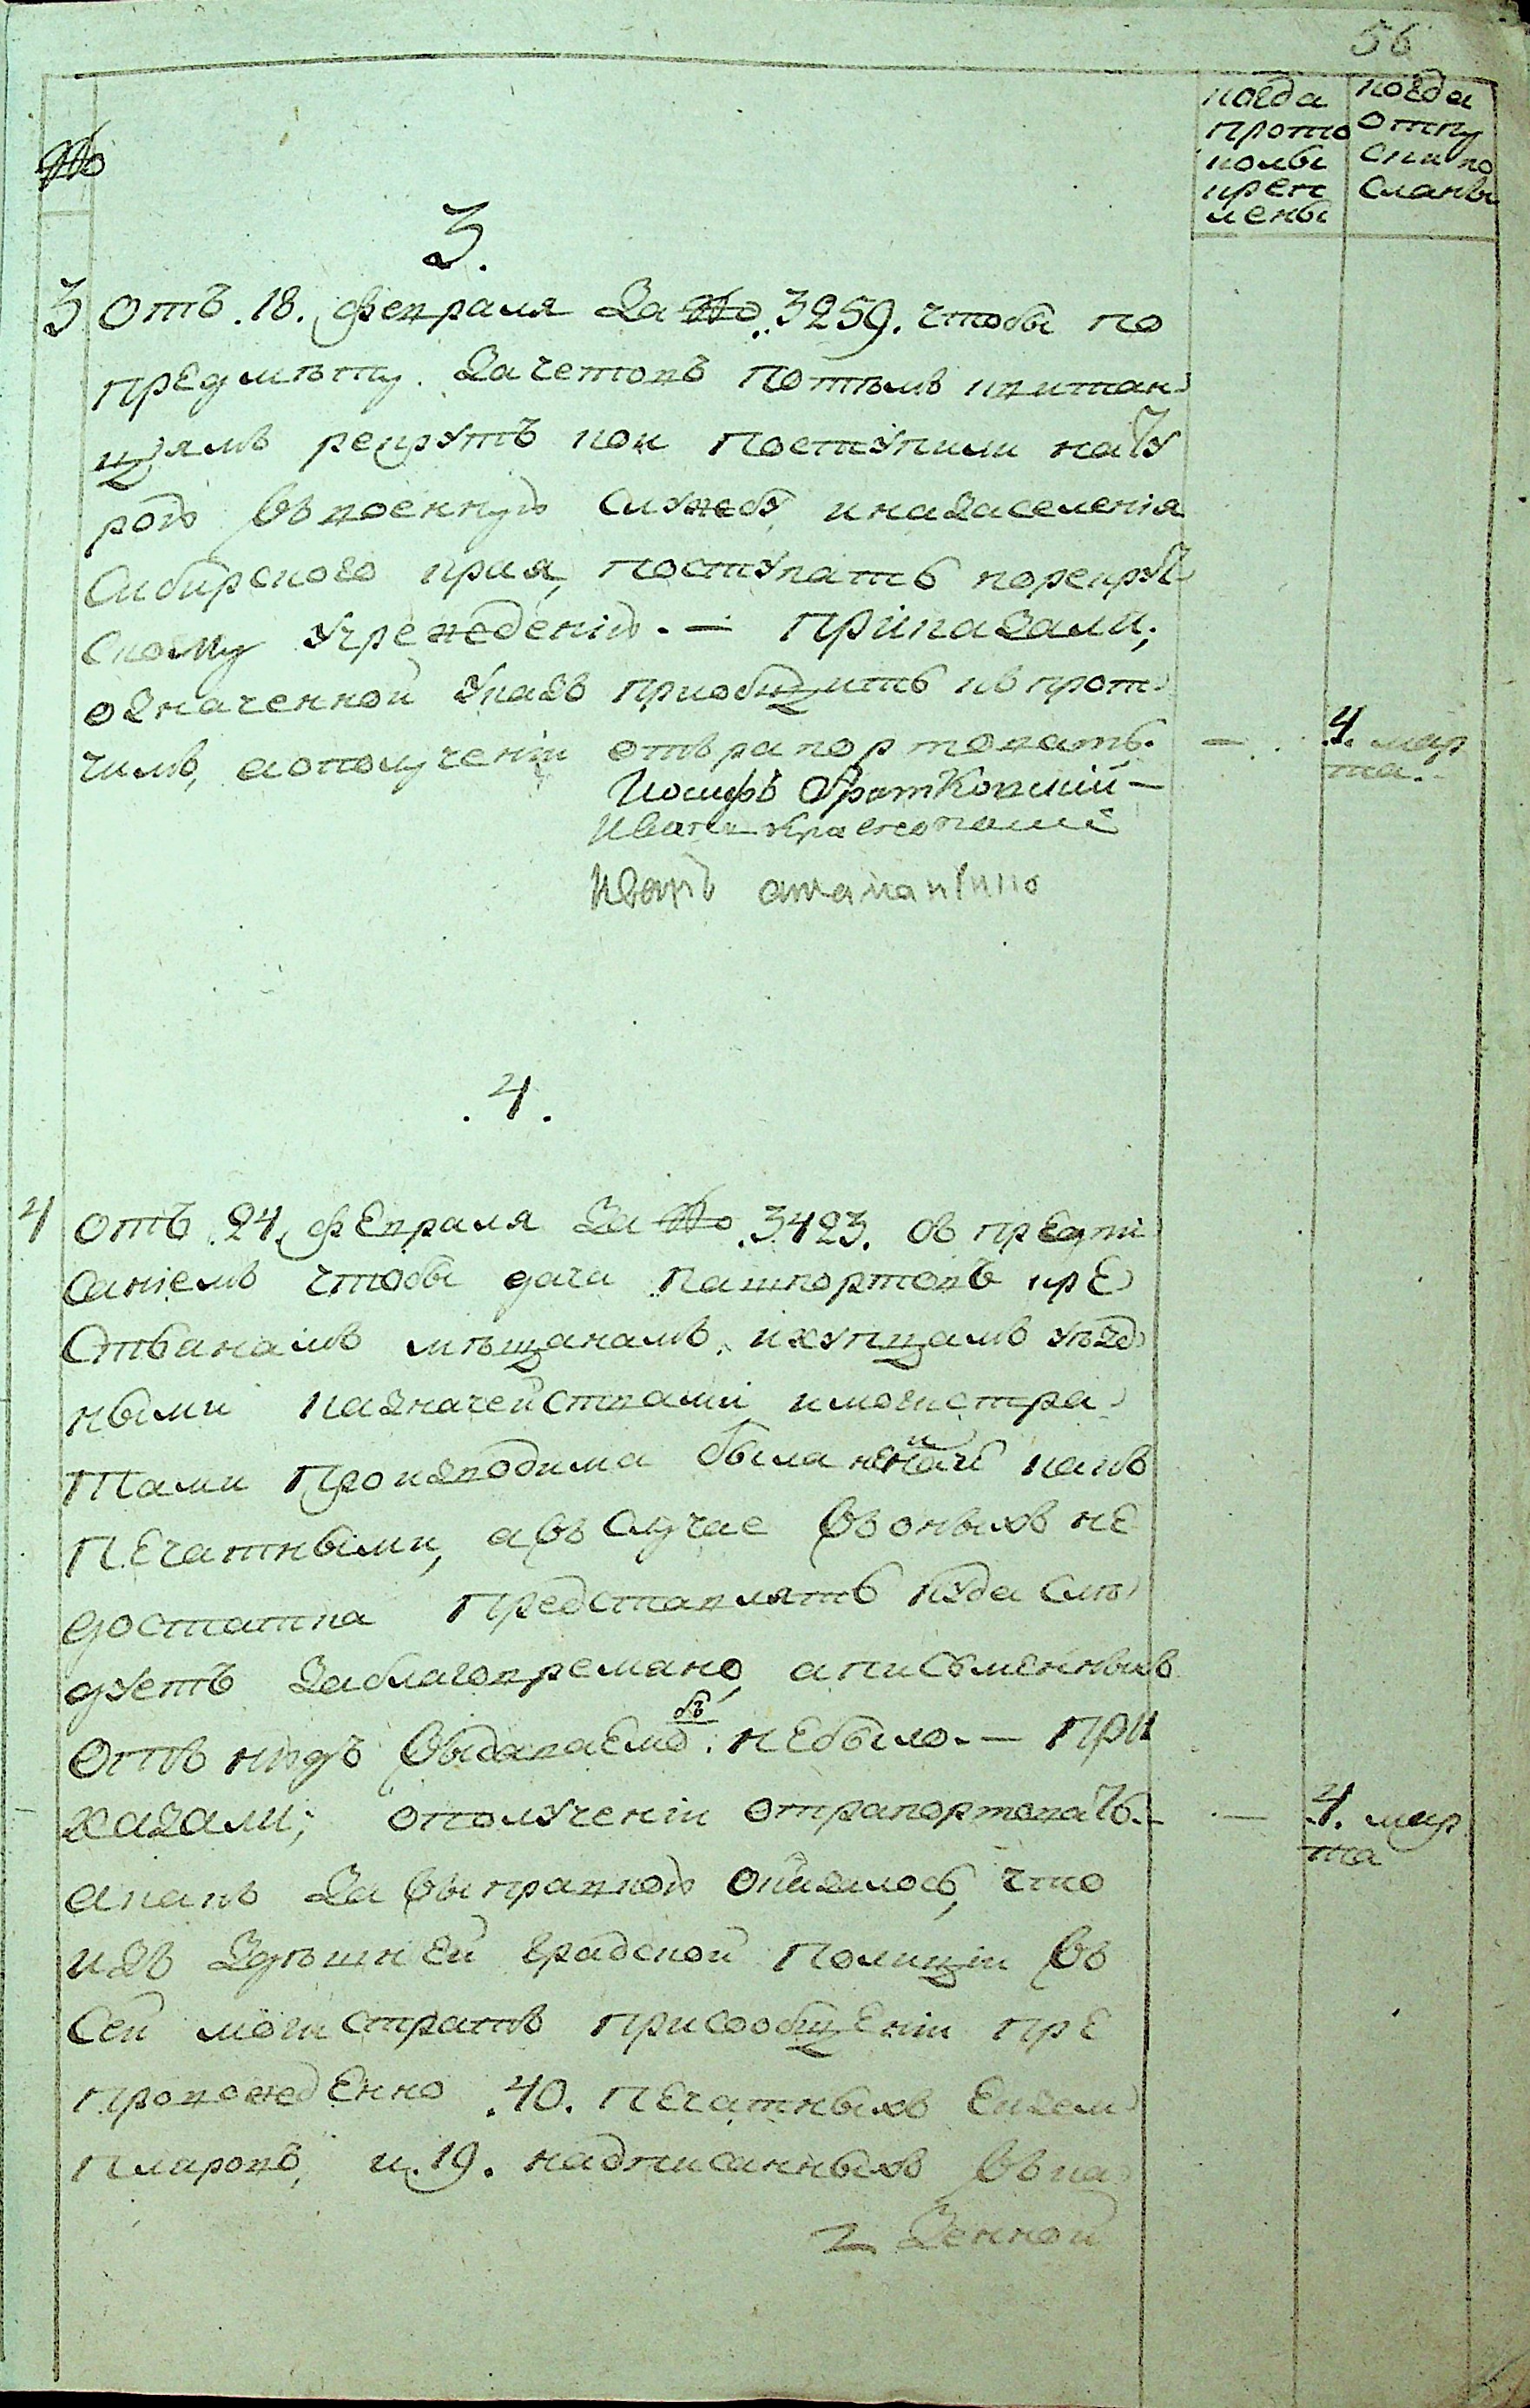 56
№
когда
прото
колы
крем
лены
когда
отпу
ски по
сланы
3.
3 отъ .18. февраля за №. 3259. чтобы по
предмѣту зачетовъ потѣмъ квитан
циямъ рекрутъ кои поступили нату
рою въ военную службу, и на заселения
Сибирского края, поступать по рекрут
скому учреждению. — Приказали;
означенной указъ приобщить къ прот
чимъ, а о получении отърапортовать. — 4. мар
та.
Иосифъ Братковский —
Иванъ
Иванъ
.4.
4 отъ .24. февраля за №. 3423. съ предпи
саниемъ чтобы дача пашпортовъ кре
стьянамъ мѣщанамъ, и купцамъ уѣзд
ными казначействами и магистра
тами производима была не инач какъ
печатными, а въ случае въ оныхъ не
достатка представлять куда слѣ
дуетъ заблаговремано, а письменныхъ
отъ нюдъ выдаваемо бъ не было. — При
казали; о получении отрапортовать. — 4. мар
та
а какъ за выправкою оказалось, что
изъ здѣшней градской полиции въ
сей магистратъ при сообщении пре
провожденно .40. печатныхъ екзем
пляровъ, и .19. надписанныхъ въ ка
зенной